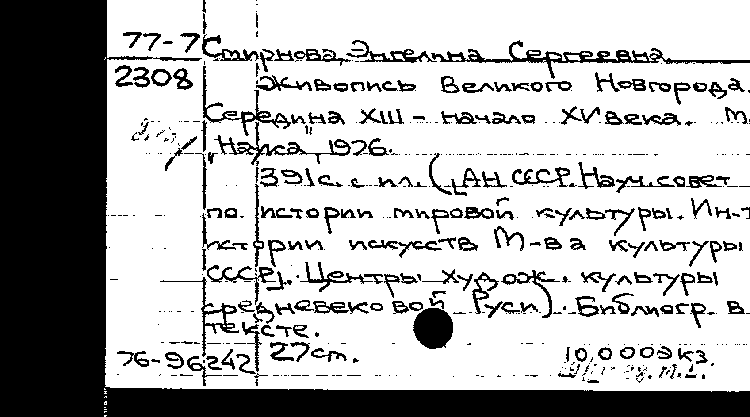 77-7 Смирнова, Энгелина Сергеевна
2308 Живопись Великого Новгорода.
Середина XIII - начало XV века. М.
"Наука", 1976.
391 с. с ил. ([АН СССР. Науч. совет
по истории мировой культуры. Ин-т
истории искусств М-ва культуры
СССР]. Центры худож. культуры
средневековой Руси). Библиогр. в
тексте.
76-96242 27 см. 10.000 экз.